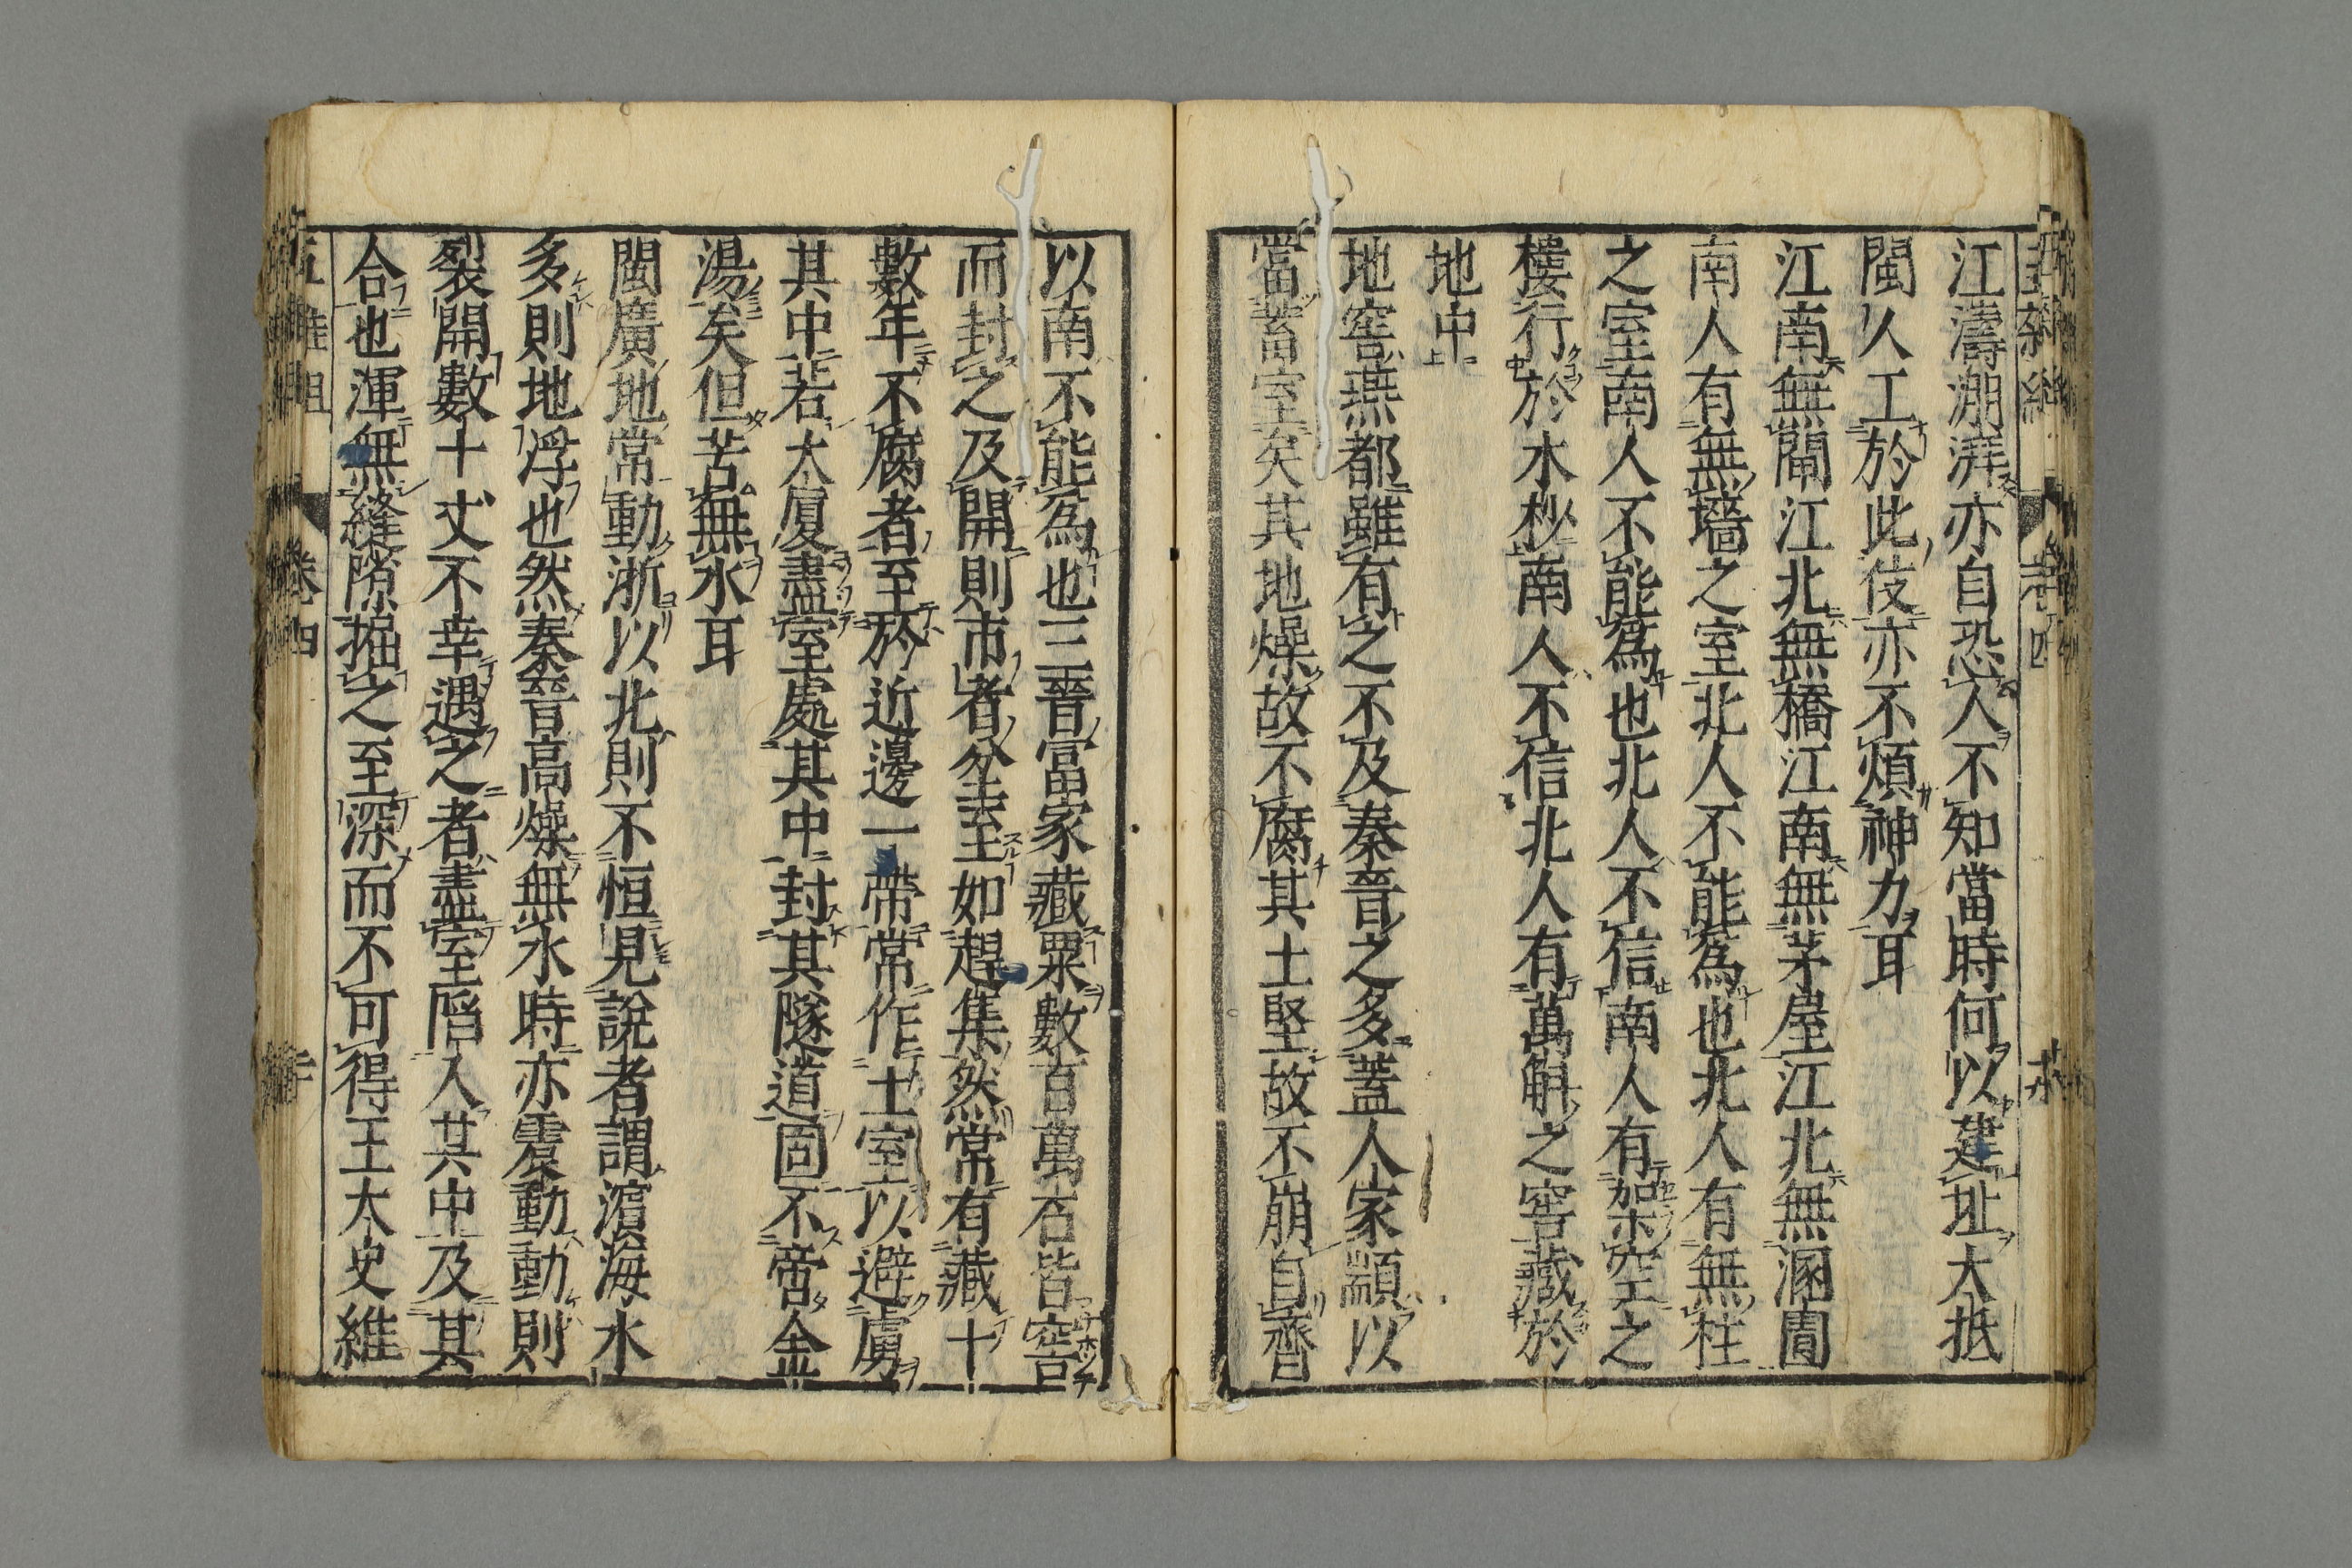 江濤湖湃亦自恐人不知當時何以建址大抵
閩人工於此伎亦不煩神力耳
江南無閘江北無橋江南無茅屋江北無溷圊
南人有無墻之室北人不能爲也北人有無柱
之室南人不能爲也北人不信南人有架空之
樓行於水杪南人不信北人有萬斛之窖藏於
地中
地窖燕都雖有之不及秦晉之多蓋人家顓以
當蓄室矣其地燥故不腐其土堅故不崩自齊
以南不能爲也三晉富家藏粟數百萬石皆窖
而封之及開則市者坌至如趕集然常有藏十
數年不腐者至於近邊一帶常作土室以避虜
其中若大厦盡室處其中封其隧道固不啻金
湯矣但苦無水耳
閩廣地常動浙以北則不恒見說者謂濵海水
多則地浮也然秦晉高燥無水時亦震動動則
裂開數十丈不幸遇之者盡室陷入其中及其
合也渾無縫隙掘之至深而不可得王太史維
五雜俎 卷四